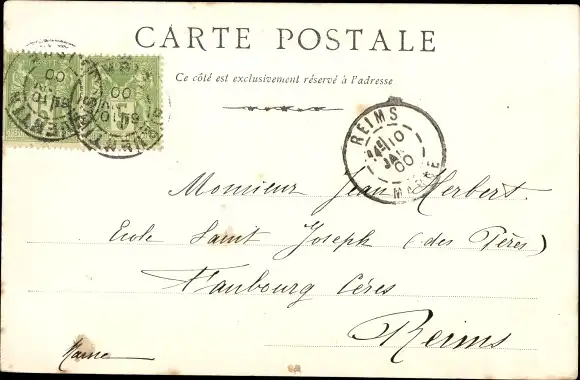 CARTE POSTALE
Ce côté est exclusivement réservé à l'adresse
REIMS
10
JAN
00
MARNE
Monsieur Jean Herbert.
Ecole Saint Joseph (des Pères)
Faubourg Céres
Reims
Marne